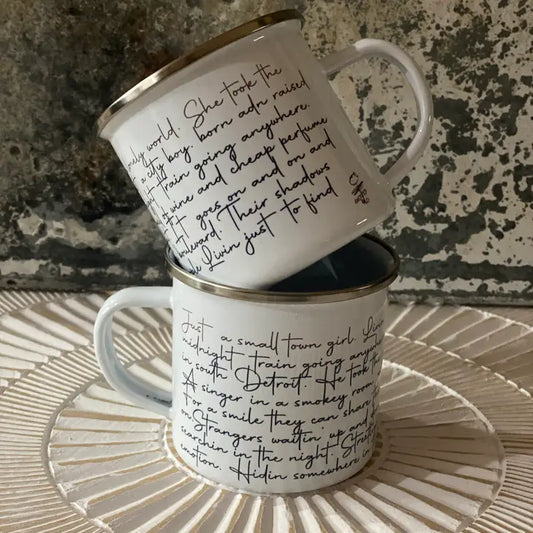 nely world. She took the
a city boy, born adn raised
t train going anywhere.
wine and cheap perfume
t goes on and on and
oulevard. Their shadows
le Livin just to find
Just a small town girl. Livin
midnight train going any
in south Detroit. He took the
A singer in a smokey room
For a smile they can share t
on. Strangers waitin' up and d
searchin in the night. Streetl
emotion. Hidin somewhere in